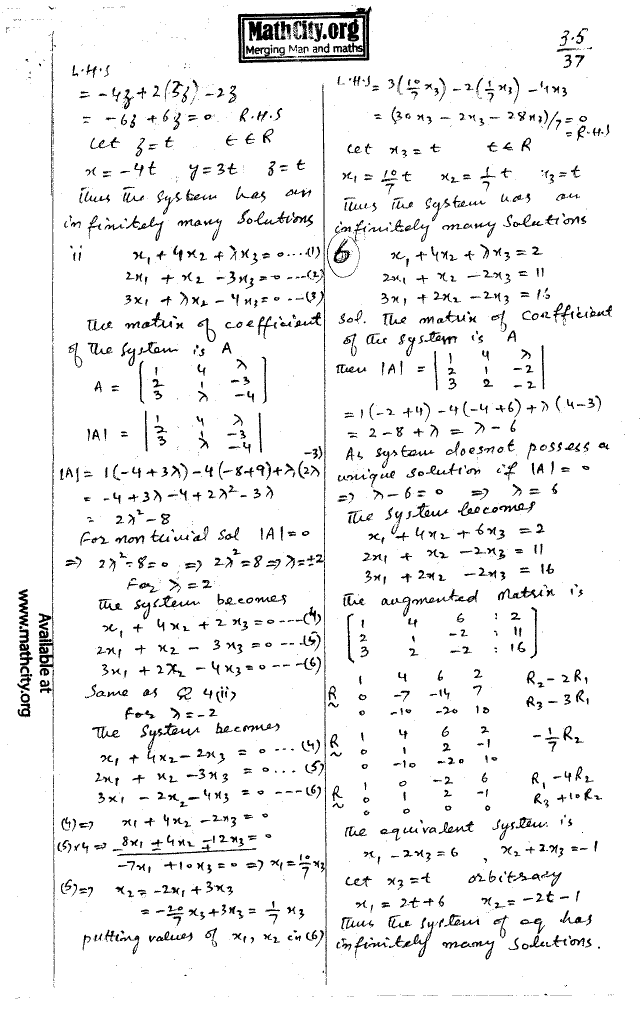 MathCity.org
Merging Man and maths
3.5
37
L.H.S
= -4z + 2(3z) - 2z
= -6z + 6z = 0 R.H.S
Let z = t t ∈ R
x = -4t y = 3t z = t
Thus the system has an
infinitely many Solutions
ii x₁ + 4x₂ + λx₃ = 0 ....(1)
2x₁ + x₂ - 3x₃ = 0 ---(2)
3x₁ + λx₂ - 4x₃ = 0 ---(3)
The matrix of coefficient
of the system is A
A = [1 4 λ
2 1 -3
3 λ -4]
|A| = |1 4 λ
2 1 -3
3 λ -4|
|A| = 1(-4+3λ) -4(-8+9) + λ(2λ-3)
= -4+3λ-4+2λ²-3λ
= 2λ²-8
For non trivial Sol |A| = 0
⇒ 2λ²-8=0 ⇒ 2λ²=8 ⇒ λ=±2
For λ = 2
The system becomes
x₁ + 4x₂ + 2x₃ = 0 ----(4)
2x₁ + x₂ - 3x₃ = 0 ---(5)
3x₁ + 2x₂ - 4x₃ = 0 ---(6)
Same as Q 4(ii)
For λ = -2
The System becomes
x₁ + 4x₂ - 2x₃ = 0 ... (4)
2x₁ + x₂ - 3x₃ = 0 .... (5)
3x₁ - 2x₂ - 4x₃ = 0 ----(6)
(4)⇒ x₁ + 4x₂ - 2x₃ = 0
(5)×4⇒ 8x₁ ± 4x₂ -12x₃ = 0
-7x₁ + 10x₃ = 0 ⇒ x₁ = 10/7 x₃
(5)⇒ x₂ = -2x₁ + 3x₃
= -20/7 x₃ + 3x₃ = 1/7 x₃
putting values of x₁, x₂ in (6)
L.H.S = 3(10/7 x₃) - 2(1/7 x₃) - 4x₃
= (30x₃ - 2x₃ - 28x₃)/7 = 0
= R.H.S
Let x₃ = t t ∈ R
x₁ = 10/7 t x₂ = 1/7 t x₃ = t
Thus the System has an
infinitely many Solutions
6 x₁ + 4x₂ + λx₃ = 2
2x₁ + x₂ - 2x₃ = 11
3x₁ + 2x₂ - 2x₃ = 16
Sol. The matrix of Coefficient
of the system is A
then |A| = |1 4 λ
2 1 -2
3 2 -2|
= 1(-2+4) -4(-4+6) + λ(4-3)
= 2 - 8 + λ = λ - 6
As system doesnot possess a
unique solution if |A| = 0
⇒ λ - 6 = 0 ⇒ λ = 6
The System becomes
x₁ + 4x₂ + 6x₃ = 2
2x₁ + x₂ - 2x₃ = 11
3x₁ + 2x₂ - 2x₃ = 16
The augmented Matrix is
[1 4 6 : 2
2 1 -2 : 11
3 2 -2 : 16]
1 4 6 2 R₂-2R₁
R~ 0 -7 -14 7 R₃-3R₁
0 -10 -20 10
1 4 6 2 -1/7 R₂
R~ 0 1 2 -1
0 -10 -20 10
1 0 -2 6 R₁-4R₂
R~ 0 1 2 -1 R₃+10R₂
0 0 0 0
The equivalent System is
x₁ - 2x₃ = 6, x₂ + 2x₃ = -1
Let x₃ = t orbitrary
x₁ = 2t + 6 x₂ = -2t - 1
Thus the System of eq has
infinitely many Solutions.
Available at
www.mathcity.org